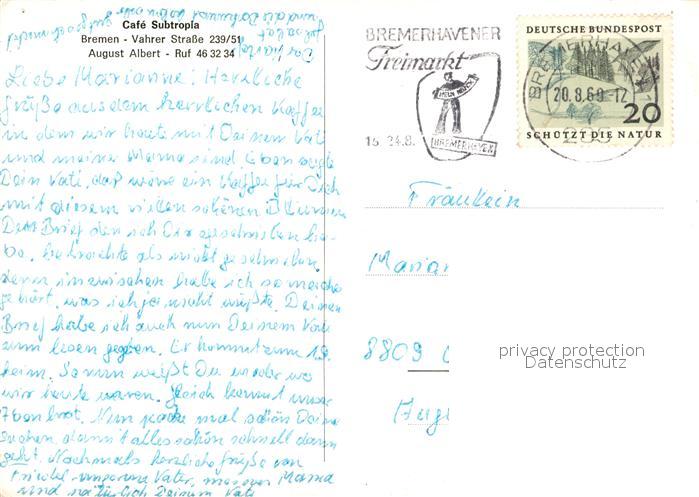 Café Subtropia
Bremen - Vahrer Straße 239/51
August Albert - Ruf 46 32 34
Liebe Marianne! Herzliche
Grüße aus dem herrlichen Kaffee
in dem wir heute mit Deinem Vati
und meiner Mama sind. Eben sagte
Dein Vati, daß wäre ein Kaffee für Dich
mit diesem vielen schönen Blumen
Den Brief den ich Dir geschrieben ha-
be, betrachte als nicht geschrieben,
denn inzwischen habe ich so manches
gehört, was ich ja nicht wußte. Deinen
Brief habe ich auch nun Deinem Vati
zum lesen gegeben. Er kommt zum 1.9.
heim. So nun weißt Du wieder wo
wir heute waren. Gleich kommt unser
Abenbrot. Nun packe mal schön Deine
Sachen damit alles schön schnell dann
geht. Nochmals herzliche Grüße von
Vater, meiner Mama
und natürlich Deinem Vati
BREMERHAVENER
Freimarkt
15. 24.8.
BREMERHAVEN
BREMERHAVEN 1
20.8.69-12
285
DEUTSCHE BUNDESPOST
20
SCHÜTZT DIE NATUR
Fräulein
Marian
8809
privacy protection
Datenschutz